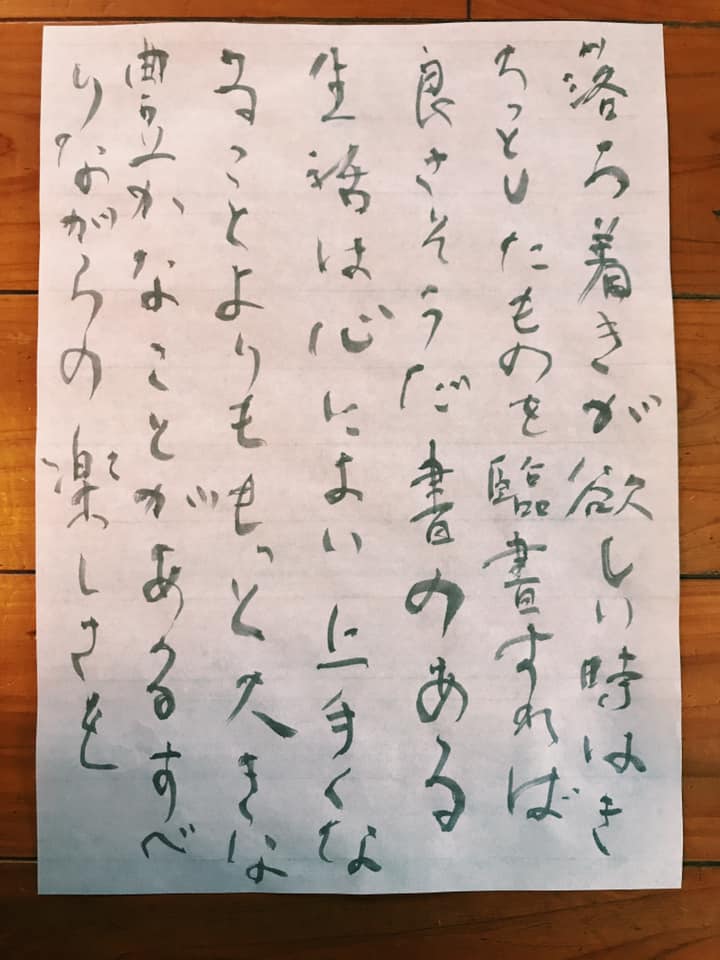 落ち着きが欲しい時はき
ちっとしたものを臨書すれば
良さそうだ書のある
生活は心によい上手くな
ることよりももっと大きな
豊かなことがあるすべ
りながらの楽しさも